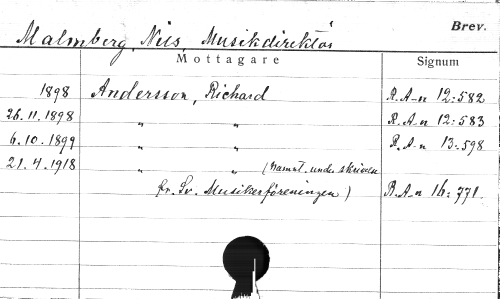 Brev.
Malmberg, Nils, Musikdirektör
Mottagare Signum
1898 Andersson, Richard R.A-n 12:582
26.11.1898 " " R.A-n 12:583
6.10.1899 " " R.A-n 13:598
21.4.1918 " " (namnt. underskrivare
fr. Sv. Musikerföreningen) R.A-n 16:771.